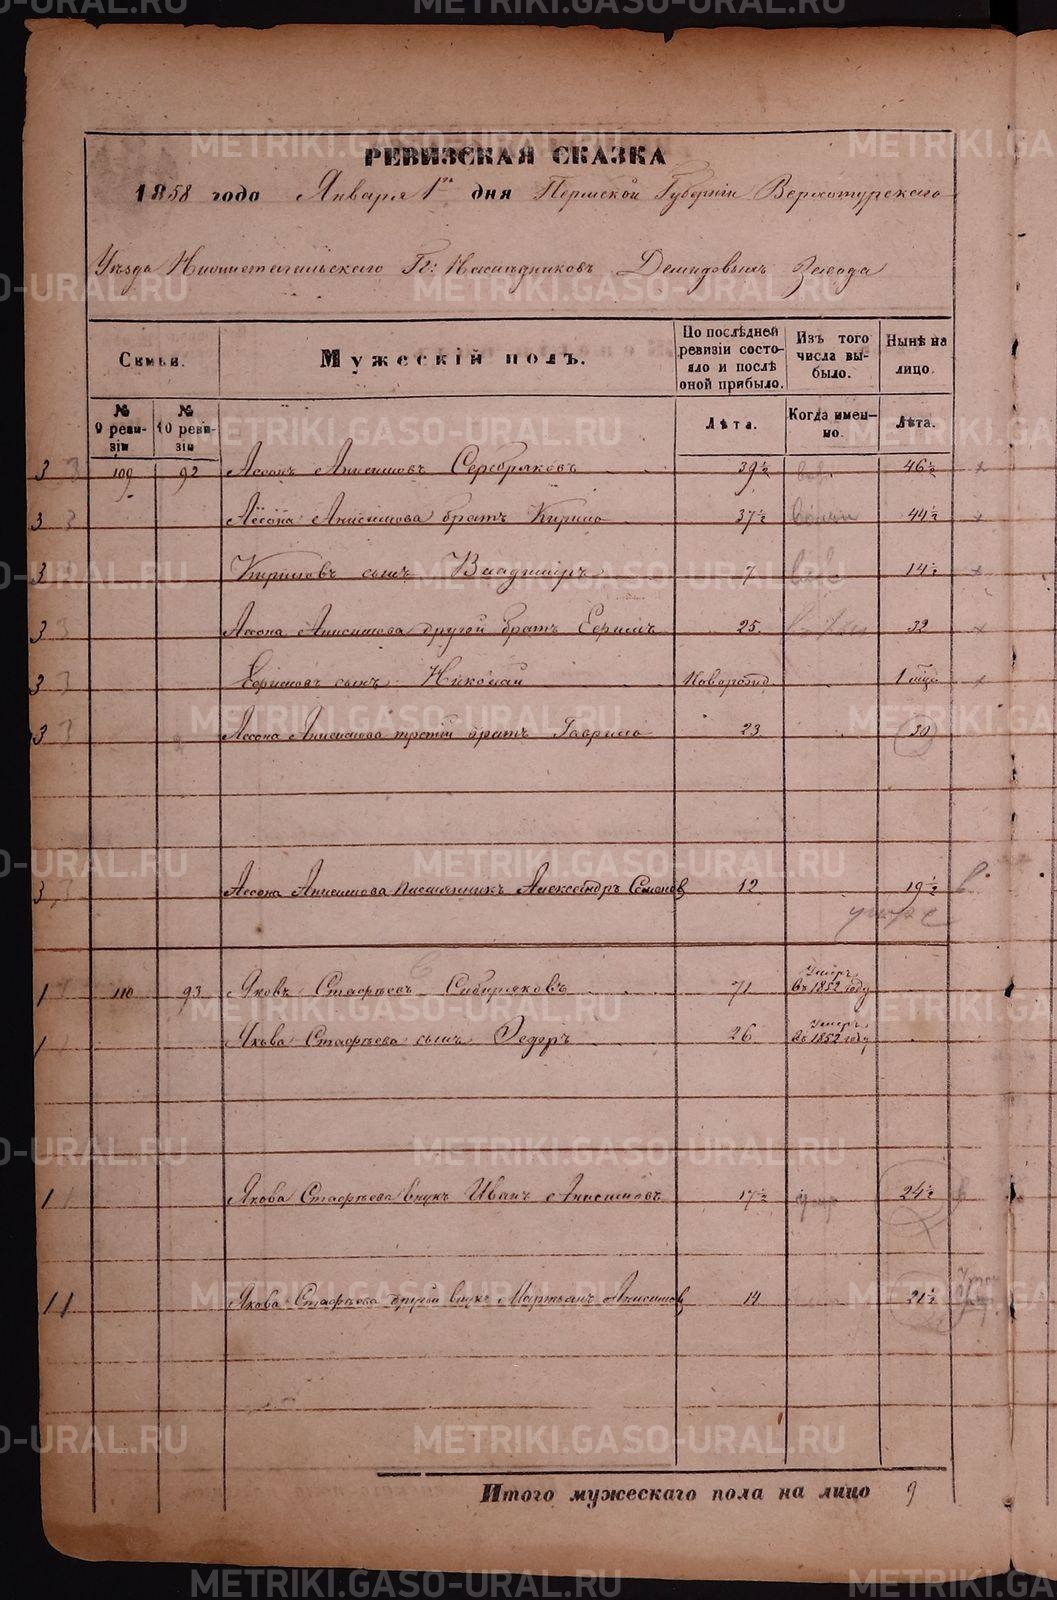 РЕВИЗСКАЯ СКАЗКА
1858 года Января 1го дня Пермской Губерніи Верхотурскаго
Уѣзда Нижнетагильскаго Гг: Наслѣдниковъ Демидовыхъ Завода
Семьи. Мужескій полъ. По послѣдней ревизіи состояло и послѣ оной прибыло. Изъ того числа выбыло. Нынѣ на лицо.
№ 9 ревизіи № 10 ревизіи Лѣта. Когда именно. Лѣта.
3 3 109 92 Ассонъ Анисимовъ Серебряковъ 39½ 46½ +
3 3 Ассона Анисимова братъ Кирило 37½ 44½ +
3 3 Кириловъ сынъ Владиміръ 7 14½ +
3 3 Ассона Анисимова другой братъ Ефимъ 25. 32 +
3 3 Ефимовъ сынъ Николай Новорожд 1 мѣс. +
3 3 Ассона Анисимова третій братъ Гаврило 23 30
3 3 Ассона Анисимова племянникъ Александръ Семеновъ 12 19½ в
умре
1 1 110 93 Яковъ Стафѣевъ Сибиряковъ 71 Умеръ въ 1852 году
1 Якова Стафѣева сынъ Федоръ 26 Умеръ въ 1852 году
1 1 Якова Стафѣева внукъ Иванъ Анисимовъ 17½ умр 24½
1 1 Якова Стафѣева другой внукъ Мартьянъ Анисимовъ 14 21½
Итого мужескаго пола на лицо 9
METRIKI.GASO-URAL.RU